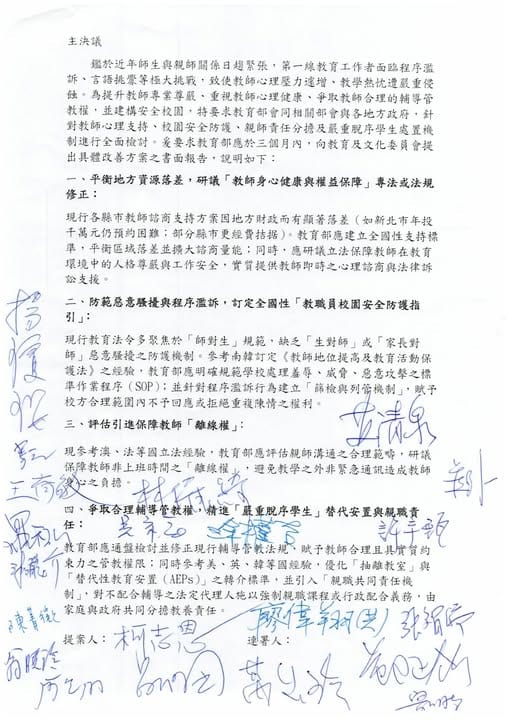 主決議
鑑於近年師生與親師關係日趨緊張，第一線教育工作者面臨程序濫
訴、言語挑釁等極大挑戰，致使教師心理壓力遽增、教學熱忱遭嚴重侵
蝕。為提升教師專業尊嚴、重視教師心理健康、爭取教師合理的輔導管
教權，並建構安全校園，特要求教育部會同相關部會與各地方政府，針
對教師心理支持、校園安全防護、親師責任分擔及嚴重脫序學生處置機
制進行全面檢討。爰要求教育部應於三個月內，向教育及文化委員會提
出具體改善方案之書面報告，說明如下：
一、平衡地方資源落差，研議「教師身心健康與權益保障」專法或法規
修正：
現行各縣市教師諮商支持方案因地方財政而有顯著落差（如新北市年投
千萬元仍預約困難；部分縣市更經費拮据）。教育部應建立全國性支持標
準，平衡區域落差並擴大諮商量能；同時，應研議立法保障教師在教育
環境中的人格尊嚴與工作安全，實質提供教師即時之心理諮商與法律訴
訟支援。
二、防範惡意騷擾與程序濫訴，訂定全國性「教職員校園安全防護指
引」：
現行教育法令多聚焦於「師對生」規範，缺乏「生對師」或「家長對
師」惡意騷擾之防護機制。參考南韓訂定《教師地位提高及教育活動保
護法》之經驗，教育部應明確規範學校處理羞辱、威脅、惡意攻擊之標
準作業程序（SOP）；並針對程序濫訴行為建立「篩檢與列管機制」，賦予
校方合理範圍內不予回應或拒絕重複陳情之權利。
三、評估引進保障教師「離線權」：
現參考澳、法等國立法經驗，教育部應評估親師溝通之合理範疇，研議
保障教師非上班時間之「離線權」，避免教學之外非緊急通訊造成教師
身心之負擔。
四、爭取合理輔導管教權，精進「嚴重脫序學生」替代安置與親職責
任：
教育部應通盤檢討並修正現行輔導管教法規、賦予教師合理且具實質約
束力之管教權限；同時參考美、英、韓等國經驗，優化「抽離教室」與
「替代性教育安置（AEPs）」之轉介標準，並引入「親職共同責任機
制」，對不配合輔導之法定代理人施以強制親職課程或行政配合義務，由
家庭與政府共同分擔教養責任。
提案人：柯志恩
連署人：
廖偉翔